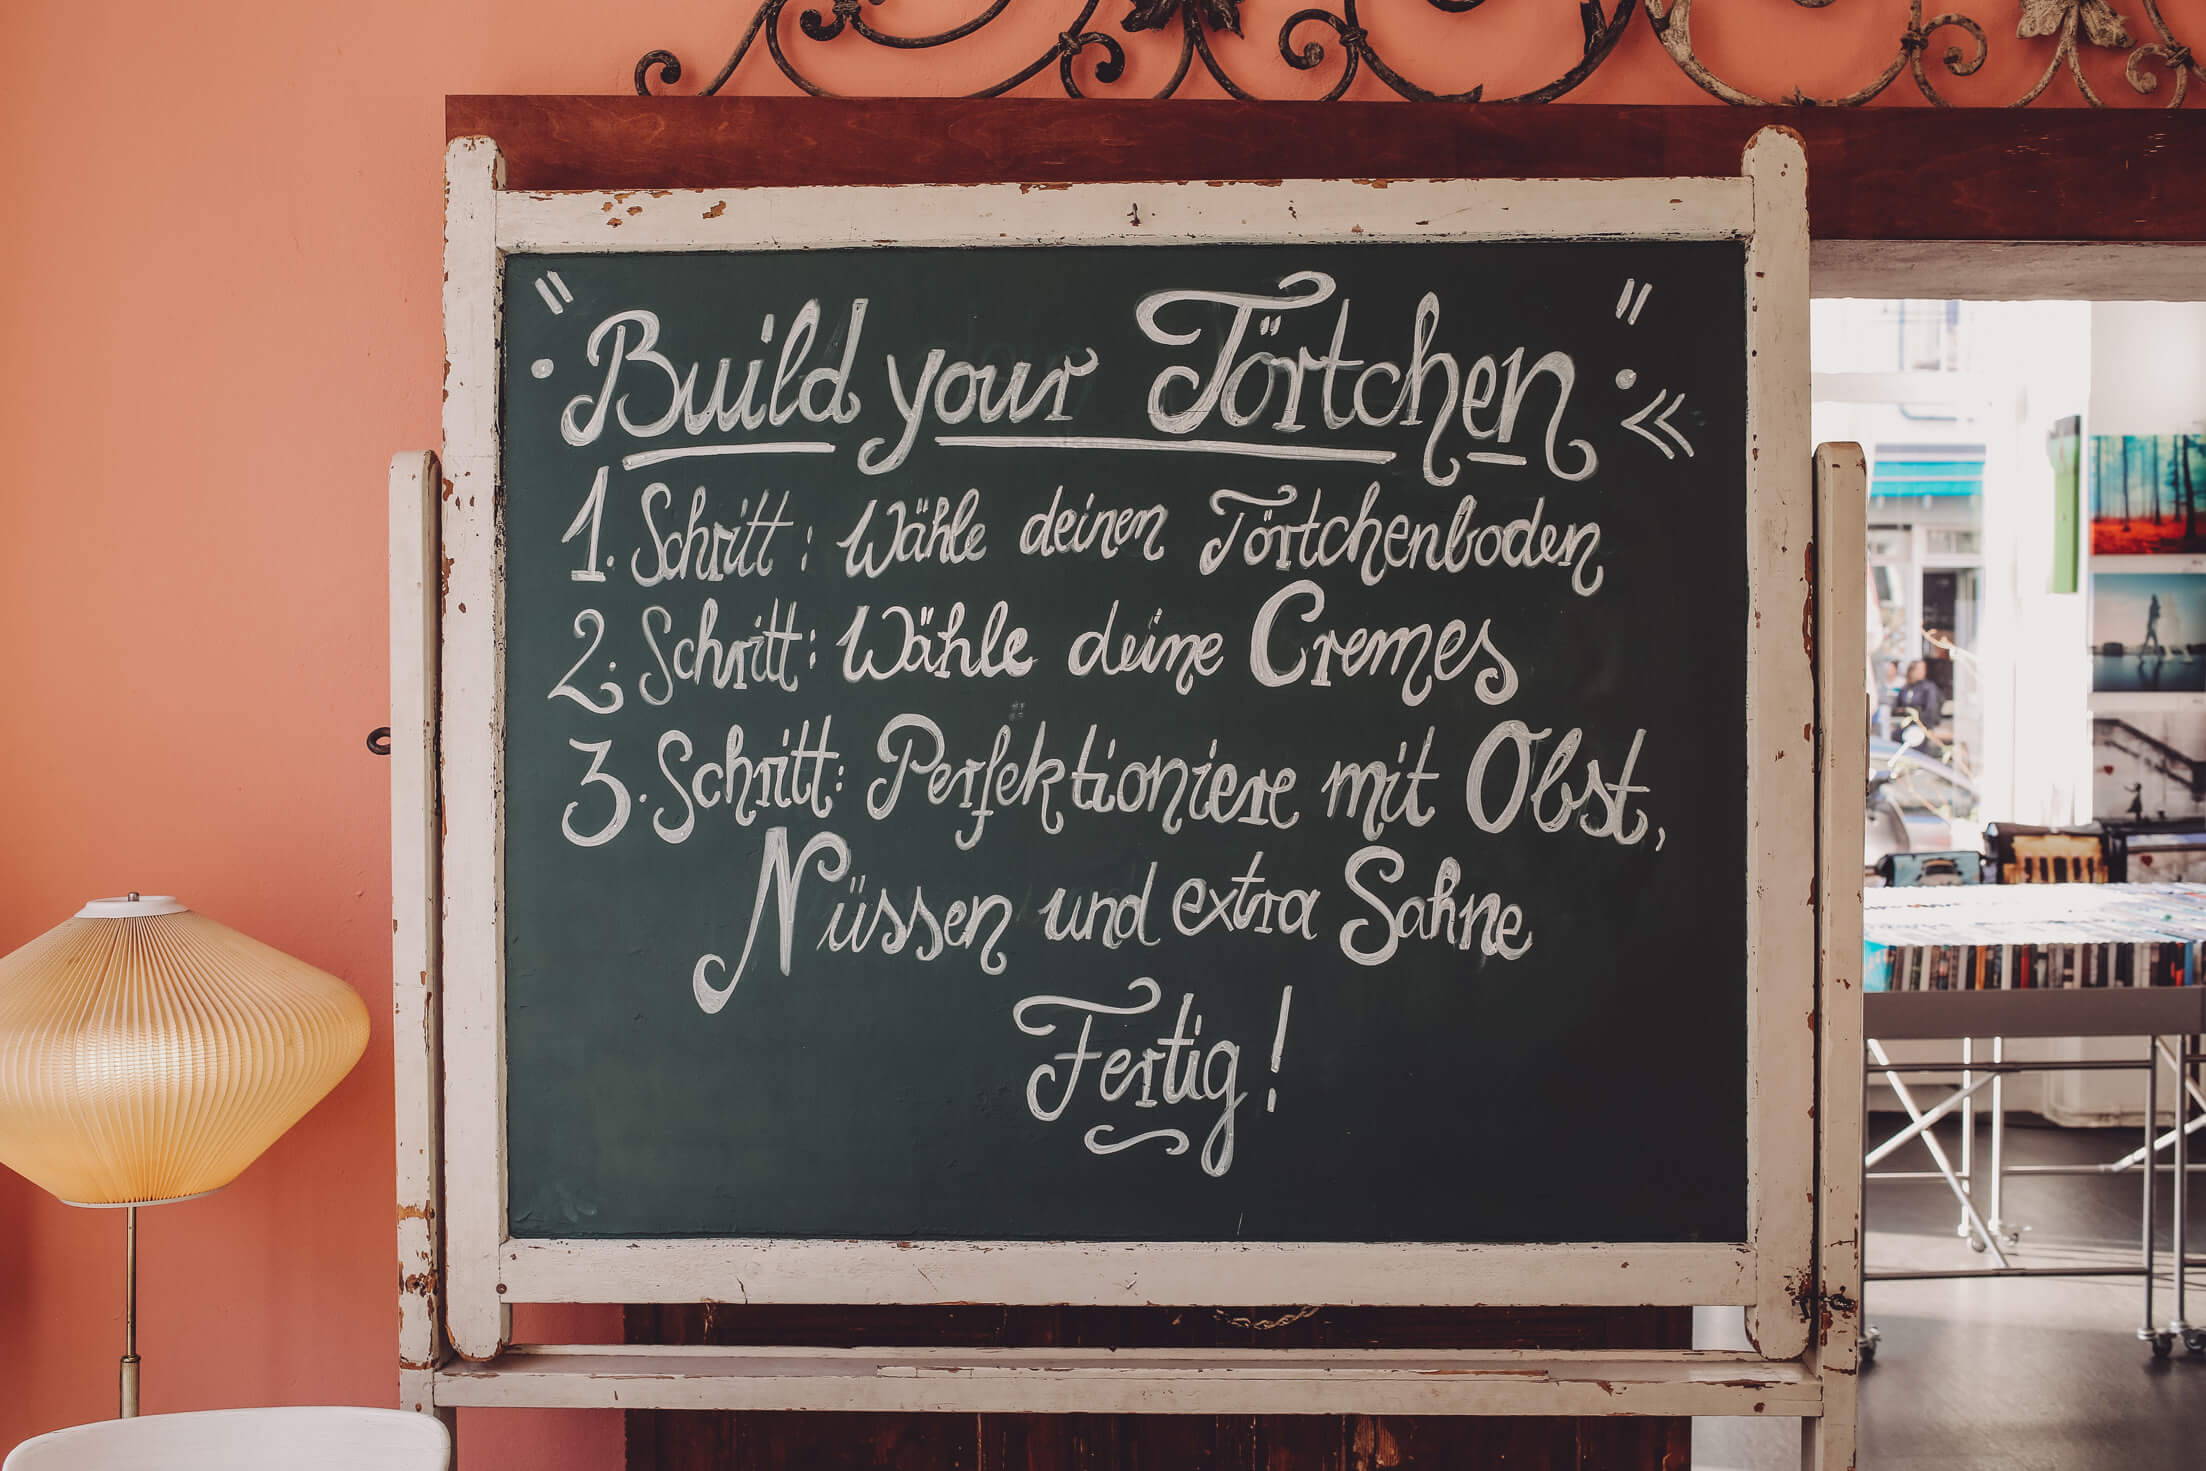 "Build your Törtchen"
1. Schritt: Wähle deinen Törtchenboden
2. Schritt: Wähle deine Cremes
3. Schritt: Perfektioniere mit Obst,
Nüssen und extra Sahne
Fertig!